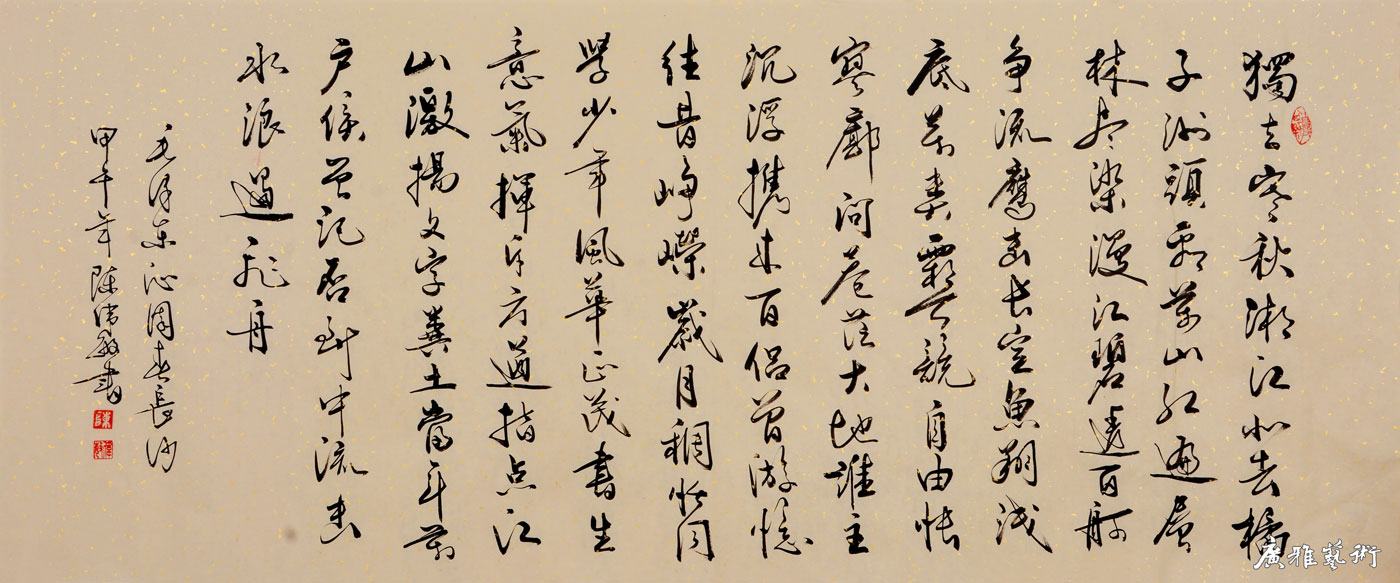 獨立寒秋湘江北去橘
子洲頭看萬山红遍層
林尽染漫江碧透百舸
争流鹰击长空鱼翔浅
底萬类霜天競自由悵
寥廓问苍茫大地誰主
沉浮攜来百侣曾游憶
往昔崢嶸歲月稠恰同
學少年風華正茂書生
意氣揮斥方遒指点江
山激揚文字糞土當年萬
户侯曾记否到中流击
水浪遏飛舟
毛泽东沁園春長沙
甲午年陈伟書
廣雅藝術